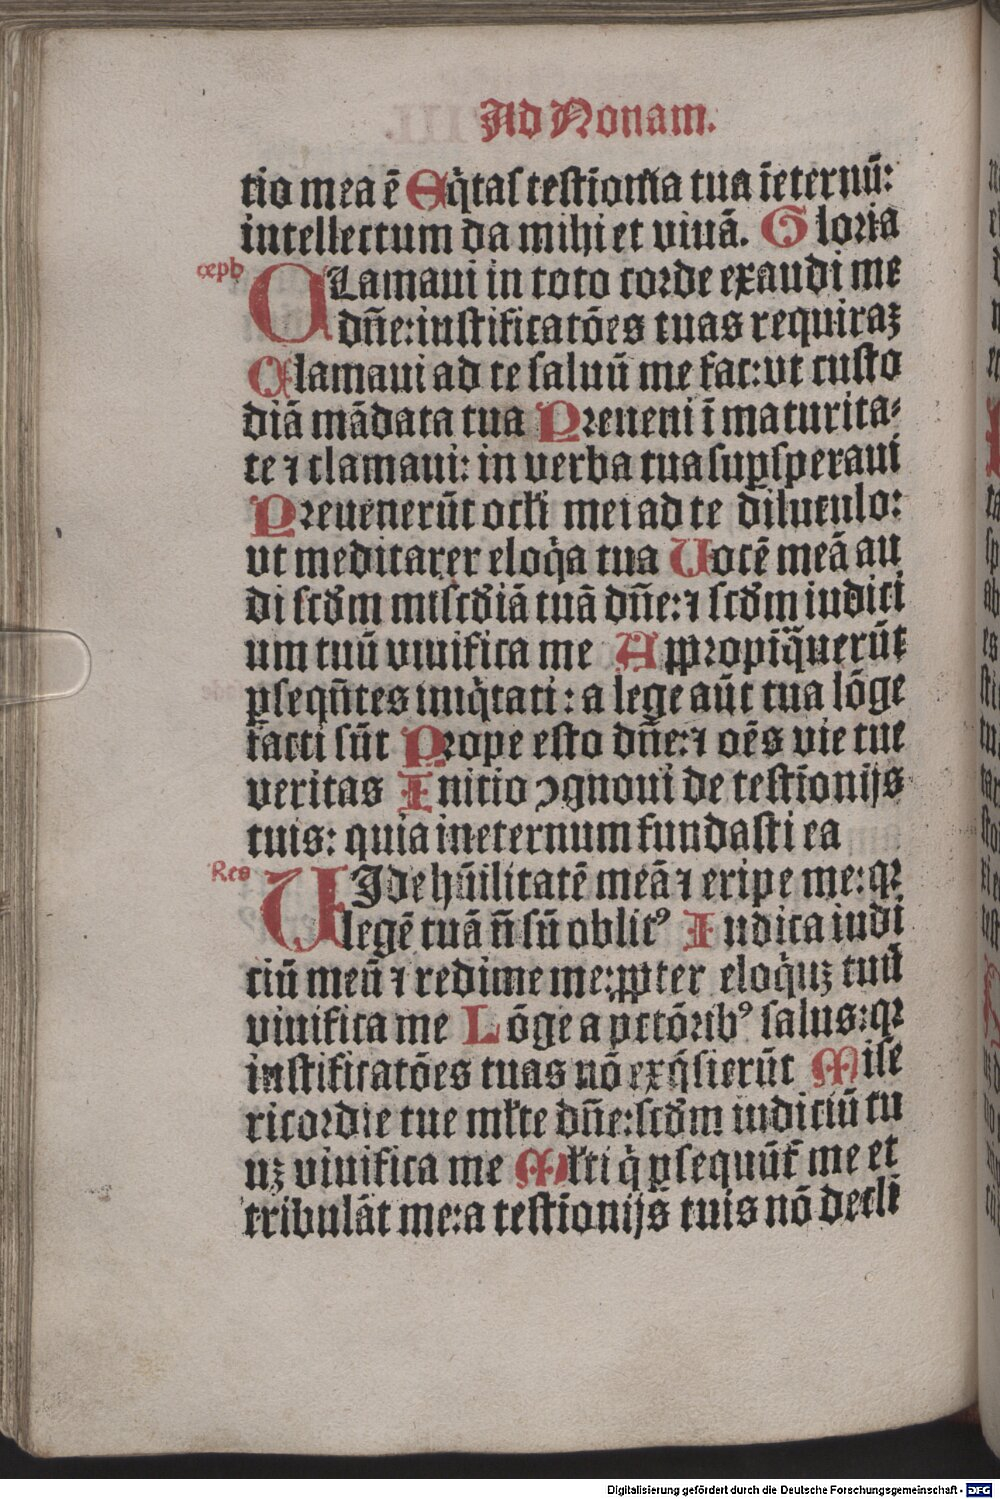 Ad Nonam.
tio mea ē Eq̄tas testīonia tua īeternū:
intellectum da mihi et viuā. Gloria
cepb
CLamaui in toto corde exaudi me
dn̄e: iustificatōes tuas requiraꝫ
Clamaui ad te saluū me fac: vt custo
diā mādata tua Preueni ī maturita⸗
te ⁊ clamaui: in verba tua suꝑsperaui
Preuenerūt ocłi mei ad te diluculo:
vt meditarer eloq̄a tua Uocē meā au
di scd̄m misc̄diā tuā dn̄e: ⁊ scd̄m iudici
um tuū viuifica me Appropīq̄uerūt
ꝑsequn̄tes iniq̄tati: a lege aūt tua lōge
facti sūt Prope esto dn̄e: ⁊ oēs vie tue
veritas Initio ꝯgnoui de testīonijs
tuis: quia ineternum fundasti ea
Res
UIde hūilitatē meā ⁊ eripe me: qꝛ
legē tuā n̄ sū oblitꝰ Iudica iudi
ciū meū ⁊ redime me: ꝓpter eloq̄uꝫ tuū
viuifica me Lōge a pctōribꝰ salus: qꝛ
iustificatōes tuas nō exq̄sierūt Mise
ricordie tue młte dn̄e: scd̄m iudiciū tu
uꝫ viuifica me Młti q̄ ꝑsequūt̄ me et
tribulāt me: a testīonijs tuis nō declī
Digitalisierung gefördert durch die Deutsche Forschungsgemeinschaft - DFG